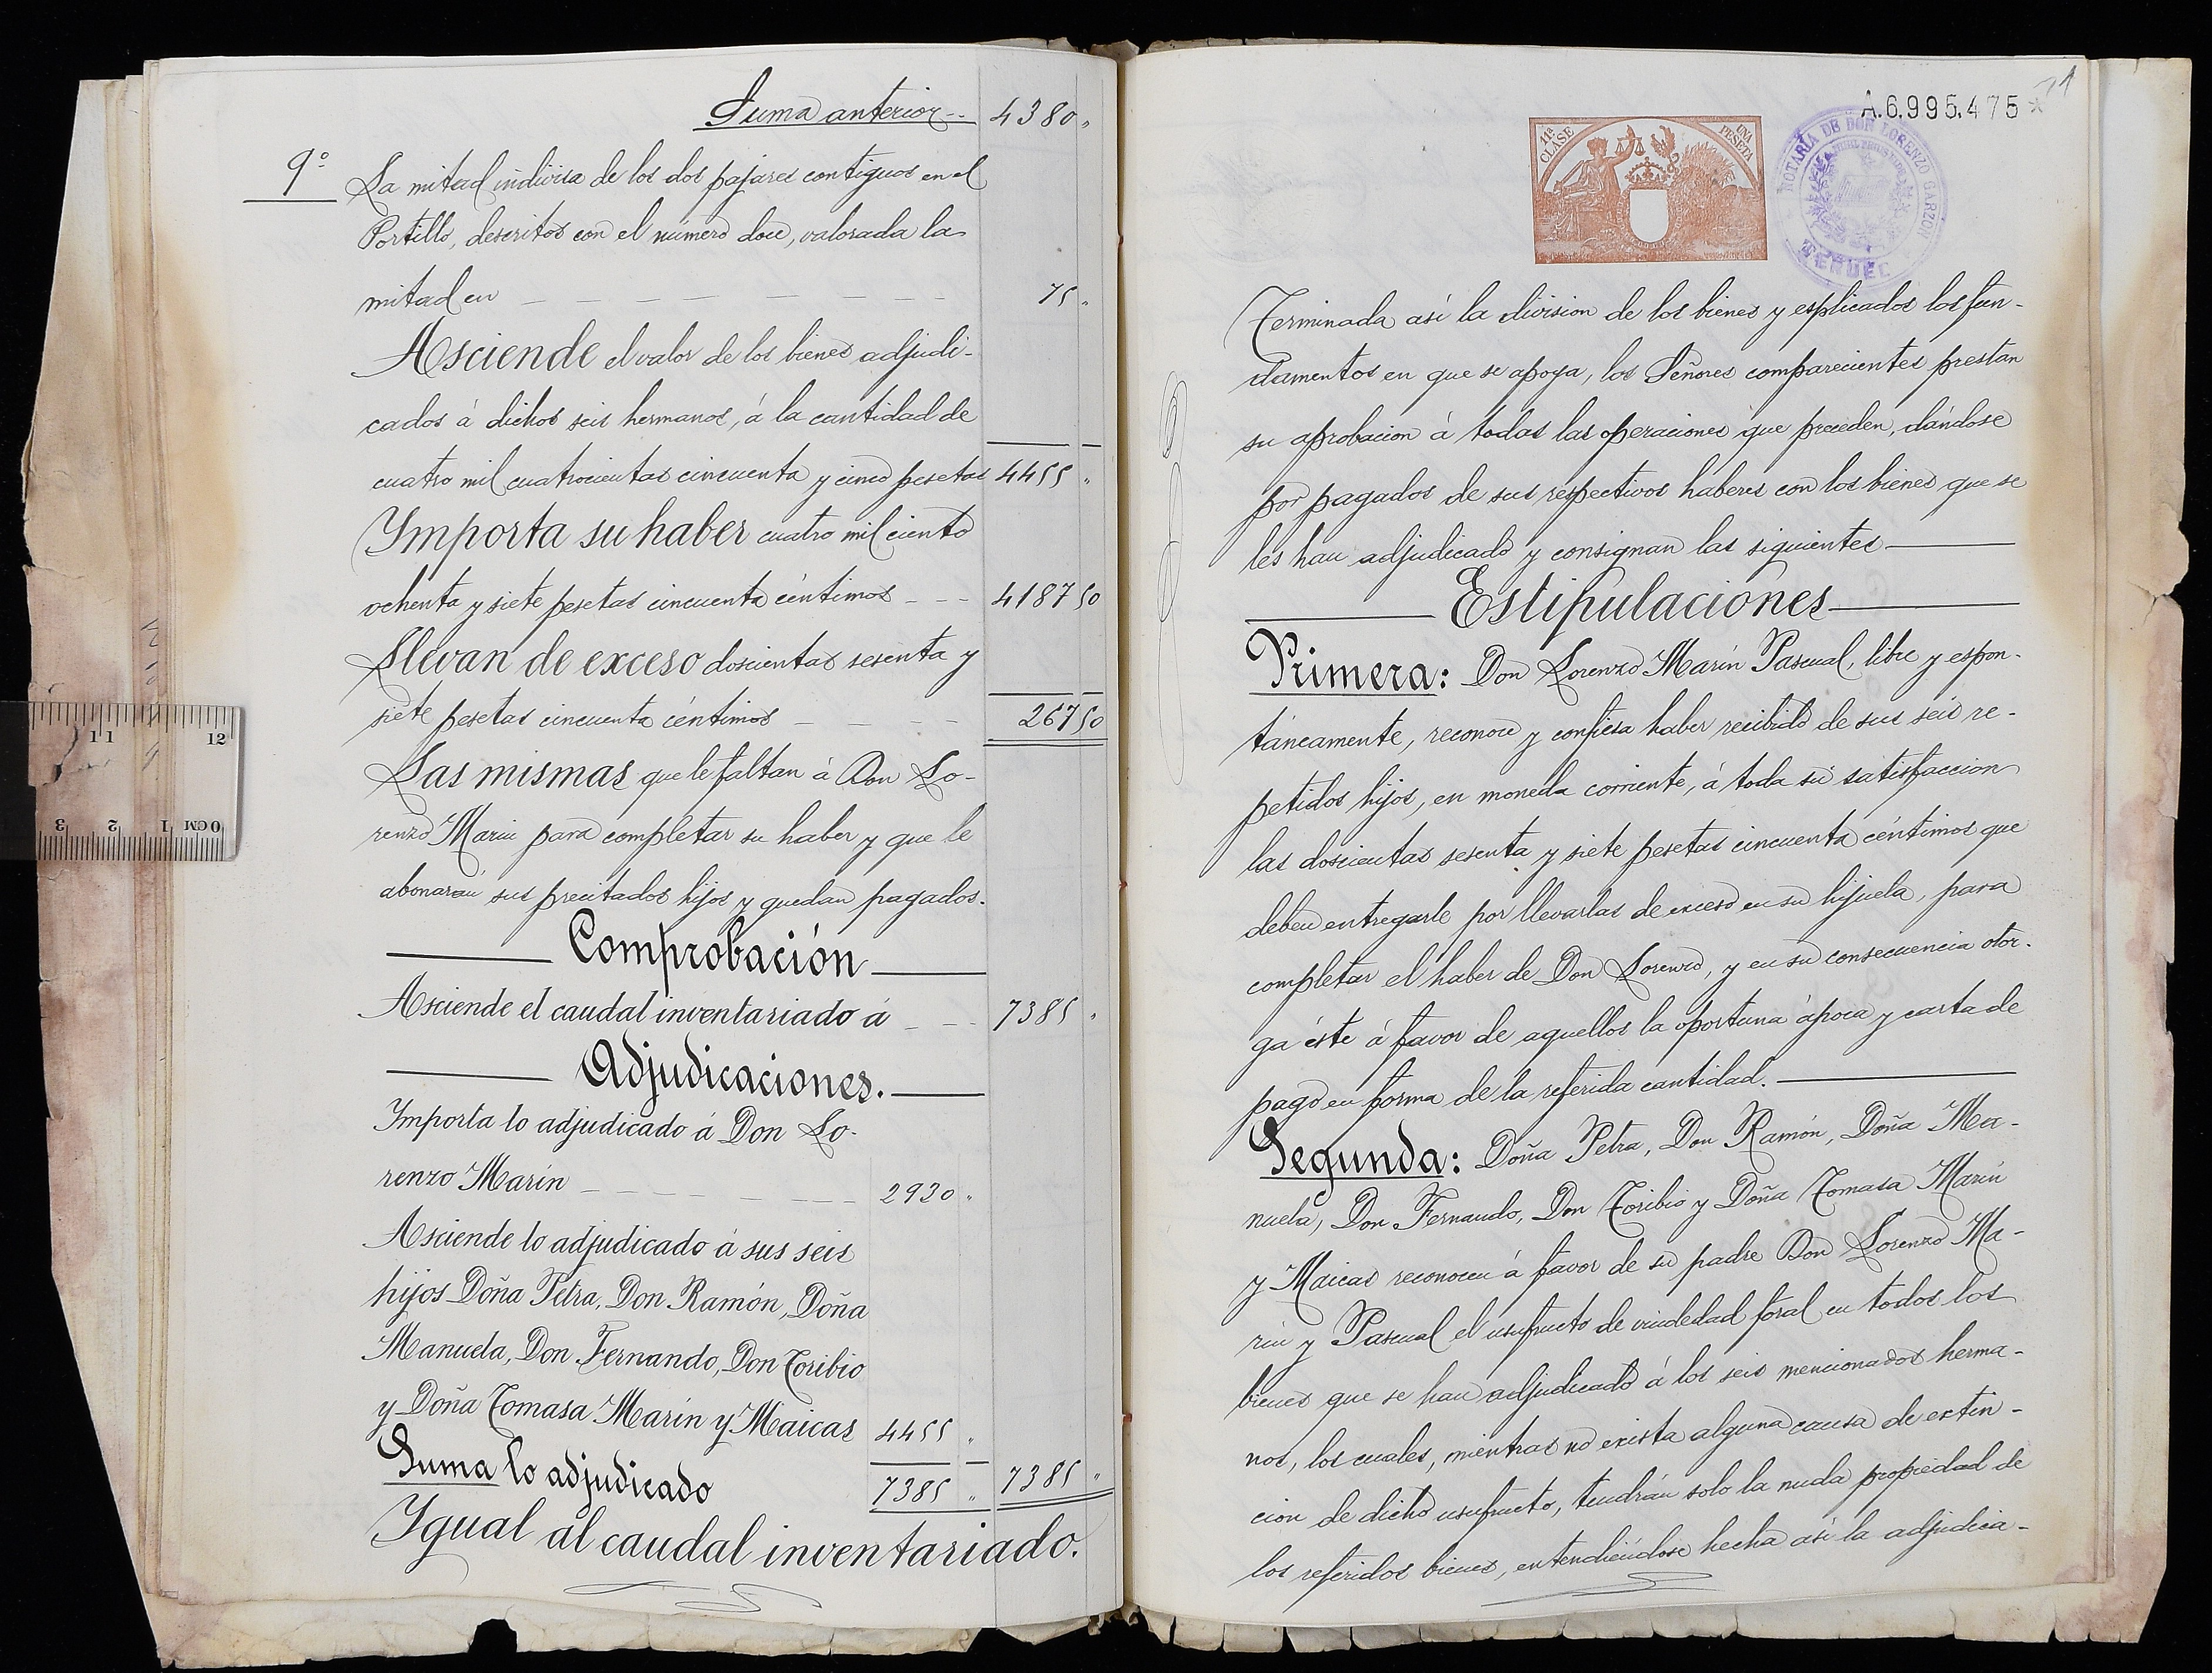 Suma anterior-- 4380 "
9º La mitad indivisa de los dos pajares contiguos en el
Portillo, descritos con el número doce, valorada la
mitad en — — — — — — — 75 "
Asciende el valor de los bienes adjudi-
cados á dichos seis hermanos, á la cantidad de
cuatro mil cuatrocientas cincuenta y cinco pesetas 4455 "
Ymporta su haber cuatro mil ciento
ochenta y siete pesetas cincuenta céntimos - - - 4187 50
Llevan de exceso doscientas sesenta y
siete pesetas cincuenta céntimos — — — — 267 50
Las mismas que le faltan á Don Lo-
renzo Marin para completar su haber y que le
abonarán sus precitados hijos y quedan pagados.
Comprobación
Asciende el caudal inventariado á - - - 7385 "
Adjudicaciones.
Ymporta lo adjudicado á Don Lo-
renzo Marín — — — — — — — 2930 "
Asciende lo adjudicado á sus seis
hijos Doña Petra, Don Ramón, Doña
Manuela, Don Fernando, Don Toribio
y Doña Tomasa Marín y Maicas 4455 "
Suma lo adjudicado 7385 " 7385 "
Ygual al caudal inventariado.
A.6.995.475 *
11ª CLASE
UNA PESETA
NOTARÍA DE DON LORENZO GARZON
TERUEL
Terminada así la division de los bienes y esplicados los fun-
damentos en que se apoya, los Señores comparecientes prestan
su aprobacion á todas las operaciones que preceden, dándose
por pagados de sus respectivos haberes con los bienes que se
les han adjudicado y consignan las siguientes
Estipulaciones
Primera: Don Lorenzo Marín Pascual, libre y espon-
táneamente, reconoce y confiesa haber recibido de sus seis re-
petidos hijos, en moneda corriente, á toda su satisfaccion
las doscientas sesenta y siete pesetas cincuenta céntimos que
deben entregarle por llevarlas de exceso en su hijuela, para
completar el haber de Don Lorenzo, y en su consecuencia otor-
ga éste á favor de aquellos la oportuna ápoca y carta de
pago en forma de la referida cantidad.
Segunda: Doña Petra, Don Ramón, Doña Ma-
nuela, Don Fernando, Don Toribio y Doña Tomasa Marin
y Maicas reconocen á favor de su padre Don Lorenzo Ma-
rin y Pascual el usufructo de viudedad foral en todos los
bienes que se han adjudicado á los seis mencionados herma-
nos, los cuales, mientras no exista alguna causa de extin-
cion de dicho usufructo, tendrán solo la nuda propiedad de
los referidos bienes, entendiéndose hecha así la adjudica-
11 12
3 2 1 0CM